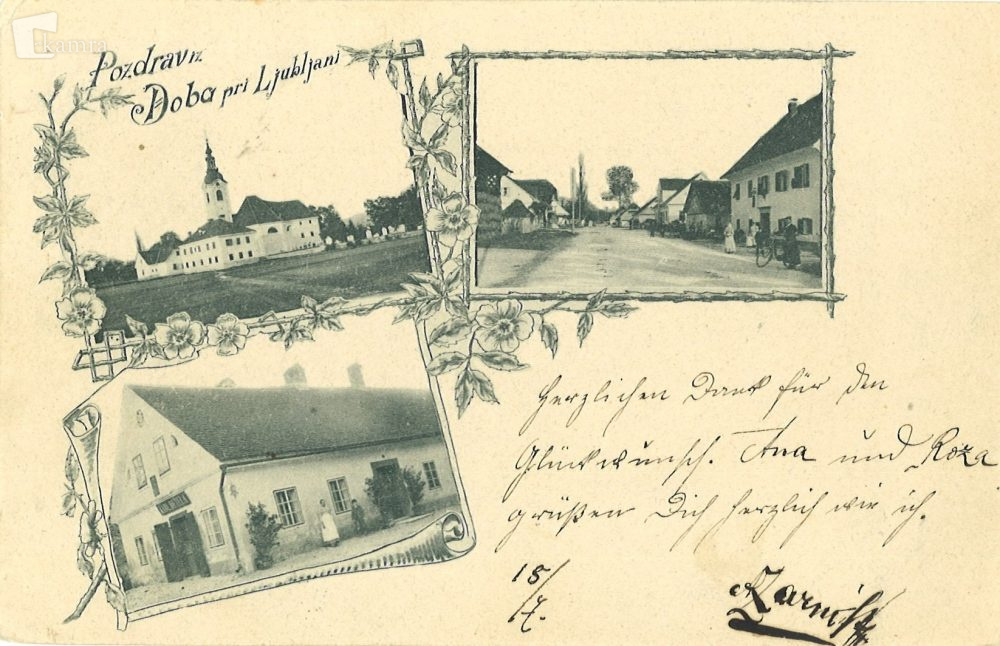 kamra
Pozdrav iz
Doba pri Ljubljani
Herzlichen Dank für den
Glückwunsch. Ana und Roza
grüßen Dich herzlich wie ich.
18/
7.